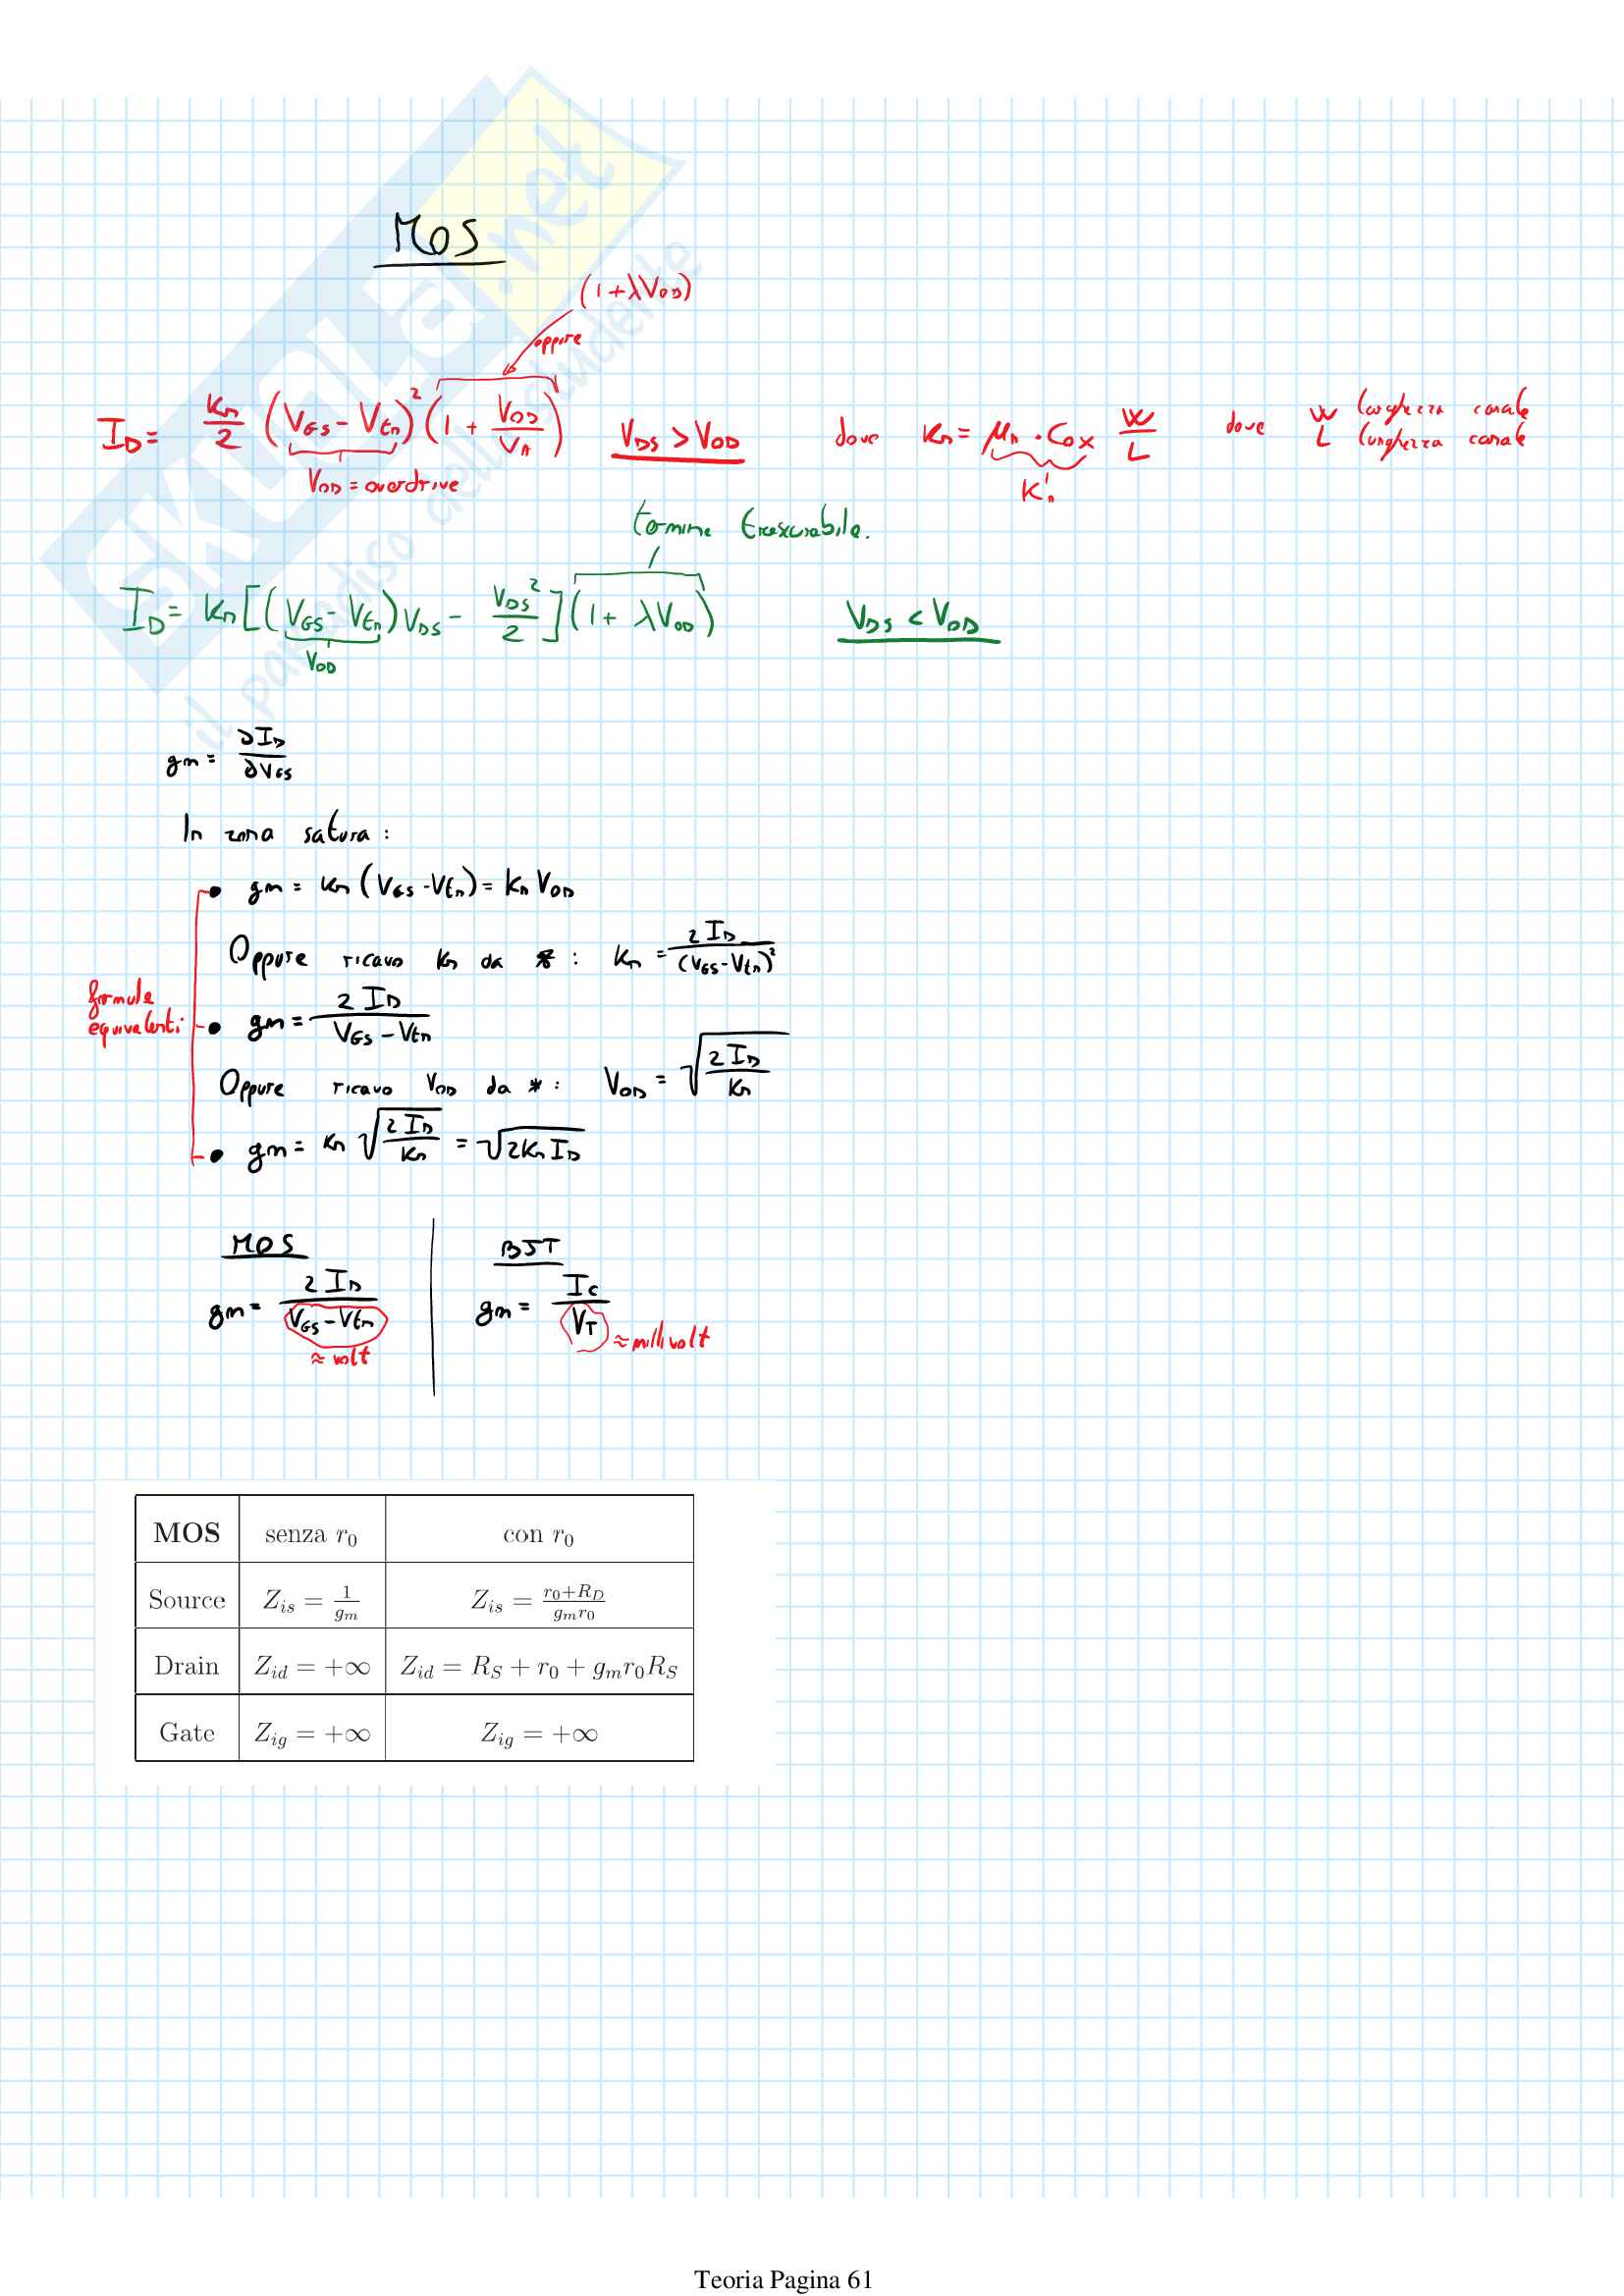 MOS
(1+λV_OD)
oppure
I_D = K_n/2 (V_GS - V_tn)² (1 + V_OD/V_A) V_DS > V_OD dove K_n = μ_n · Cox W/L dove W larghezza canale
L lunghezza canale
V_OD = overdrive K'_n
termine trascurabile.
I_D = K_n [(V_GS - V_tn) V_DS - V_DS²/2] (1 + λV_OD) V_DS < V_OD
V_OD
gm = ∂I_D/∂V_GS
In zona satura:
• gm = K_n (V_GS - V_tn) = K_n V_OD
Oppure ricavo K_n da *: K_n = 2 I_D/(V_GS - V_tn)²
formule
equivalenti
• gm = 2 I_D/(V_GS - V_tn)
Oppure ricavo V_OD da *: V_OD = √(2 I_D/K_n)
• gm = K_n √(2 I_D/K_n) = √(2 K_n I_D)
MOS BJT
gm = 2 I_D/(V_GS - V_tn) gm = I_C/V_T
≈ volt ≈ millivolt
MOS senza r_0 con r_0
Source Z_is = 1/g_m Z_is = (r_0+R_D)/(g_m r_0)
Drain Z_id = +∞ Z_id = R_S + r_0 + g_m r_0 R_S
Gate Z_ig = +∞ Z_ig = +∞
SKUOLA.net
il paradiso dello studente
Teoria Pagina 61